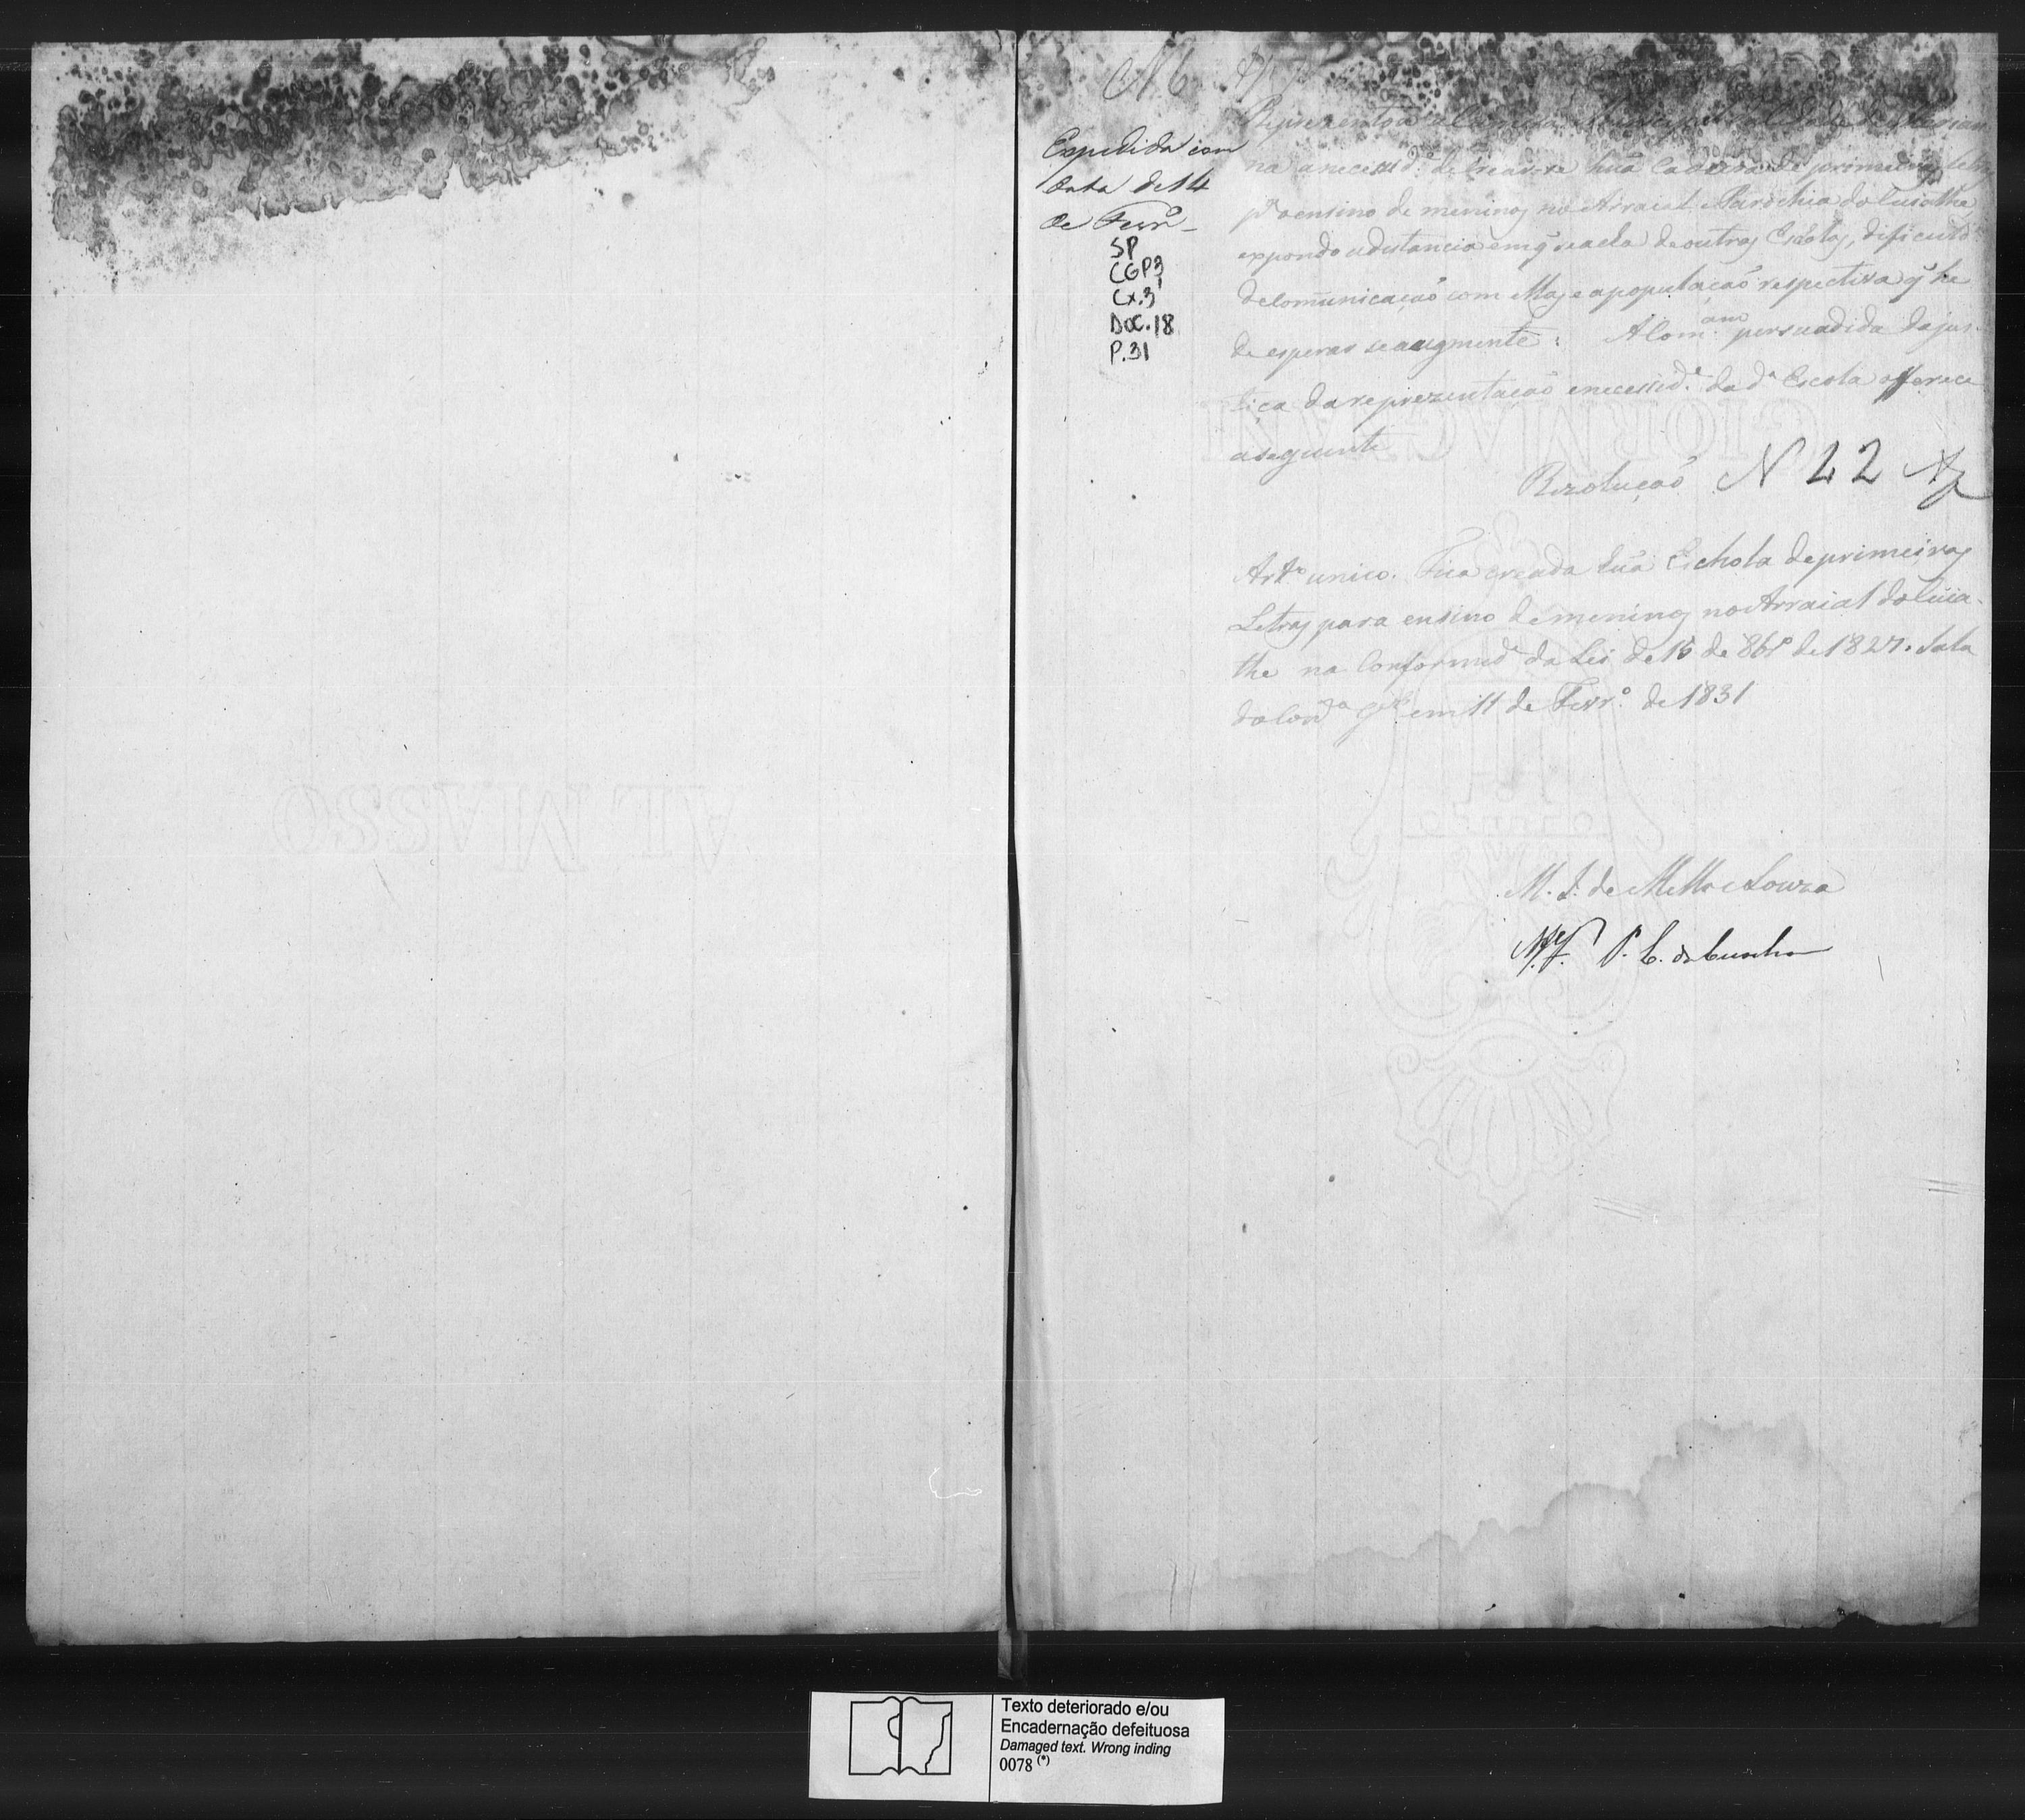 N 6
Expedida com
data de 14
de Fevrº
SP
CGP3
Cx.3
DOC.18
P.31
Reprezentou a Camara Municipal da Cidade de Marian-
na a necessidᵉ de crear-se huã Cadeira de primeiras letras
pª o ensino de meninos no Arraial e Parochia do Cuiathe
expondo a distancia em q̃ se acha de outras Escolas, dificuldᵉ
de Comũnicação com ellas e a população respectiva q̃ he
de esperar se augmente: A Comᵃᵐ persuadida da jus-
tiça da reprezentação e necessidᵉ da dª Escola offerece
a seguinte
Rezolução N 22
Artº unico. Fica creada huã Eschola de primeiras
Letras para ensino de meninos no Arraial do Cuia-
the na Conformidᵉ da Lei de 15 de 8bʳº de 1827. Sala
do Consº Gˡ em 11 de Fevrº de 1831
M. I. de Mello e Souza
P. C. da Cunha
GIORMAGNANI
AL MASSO
Texto deteriorado e/ou
Encadernação defeituosa
Damaged text. Wrong inding
0078 (*)